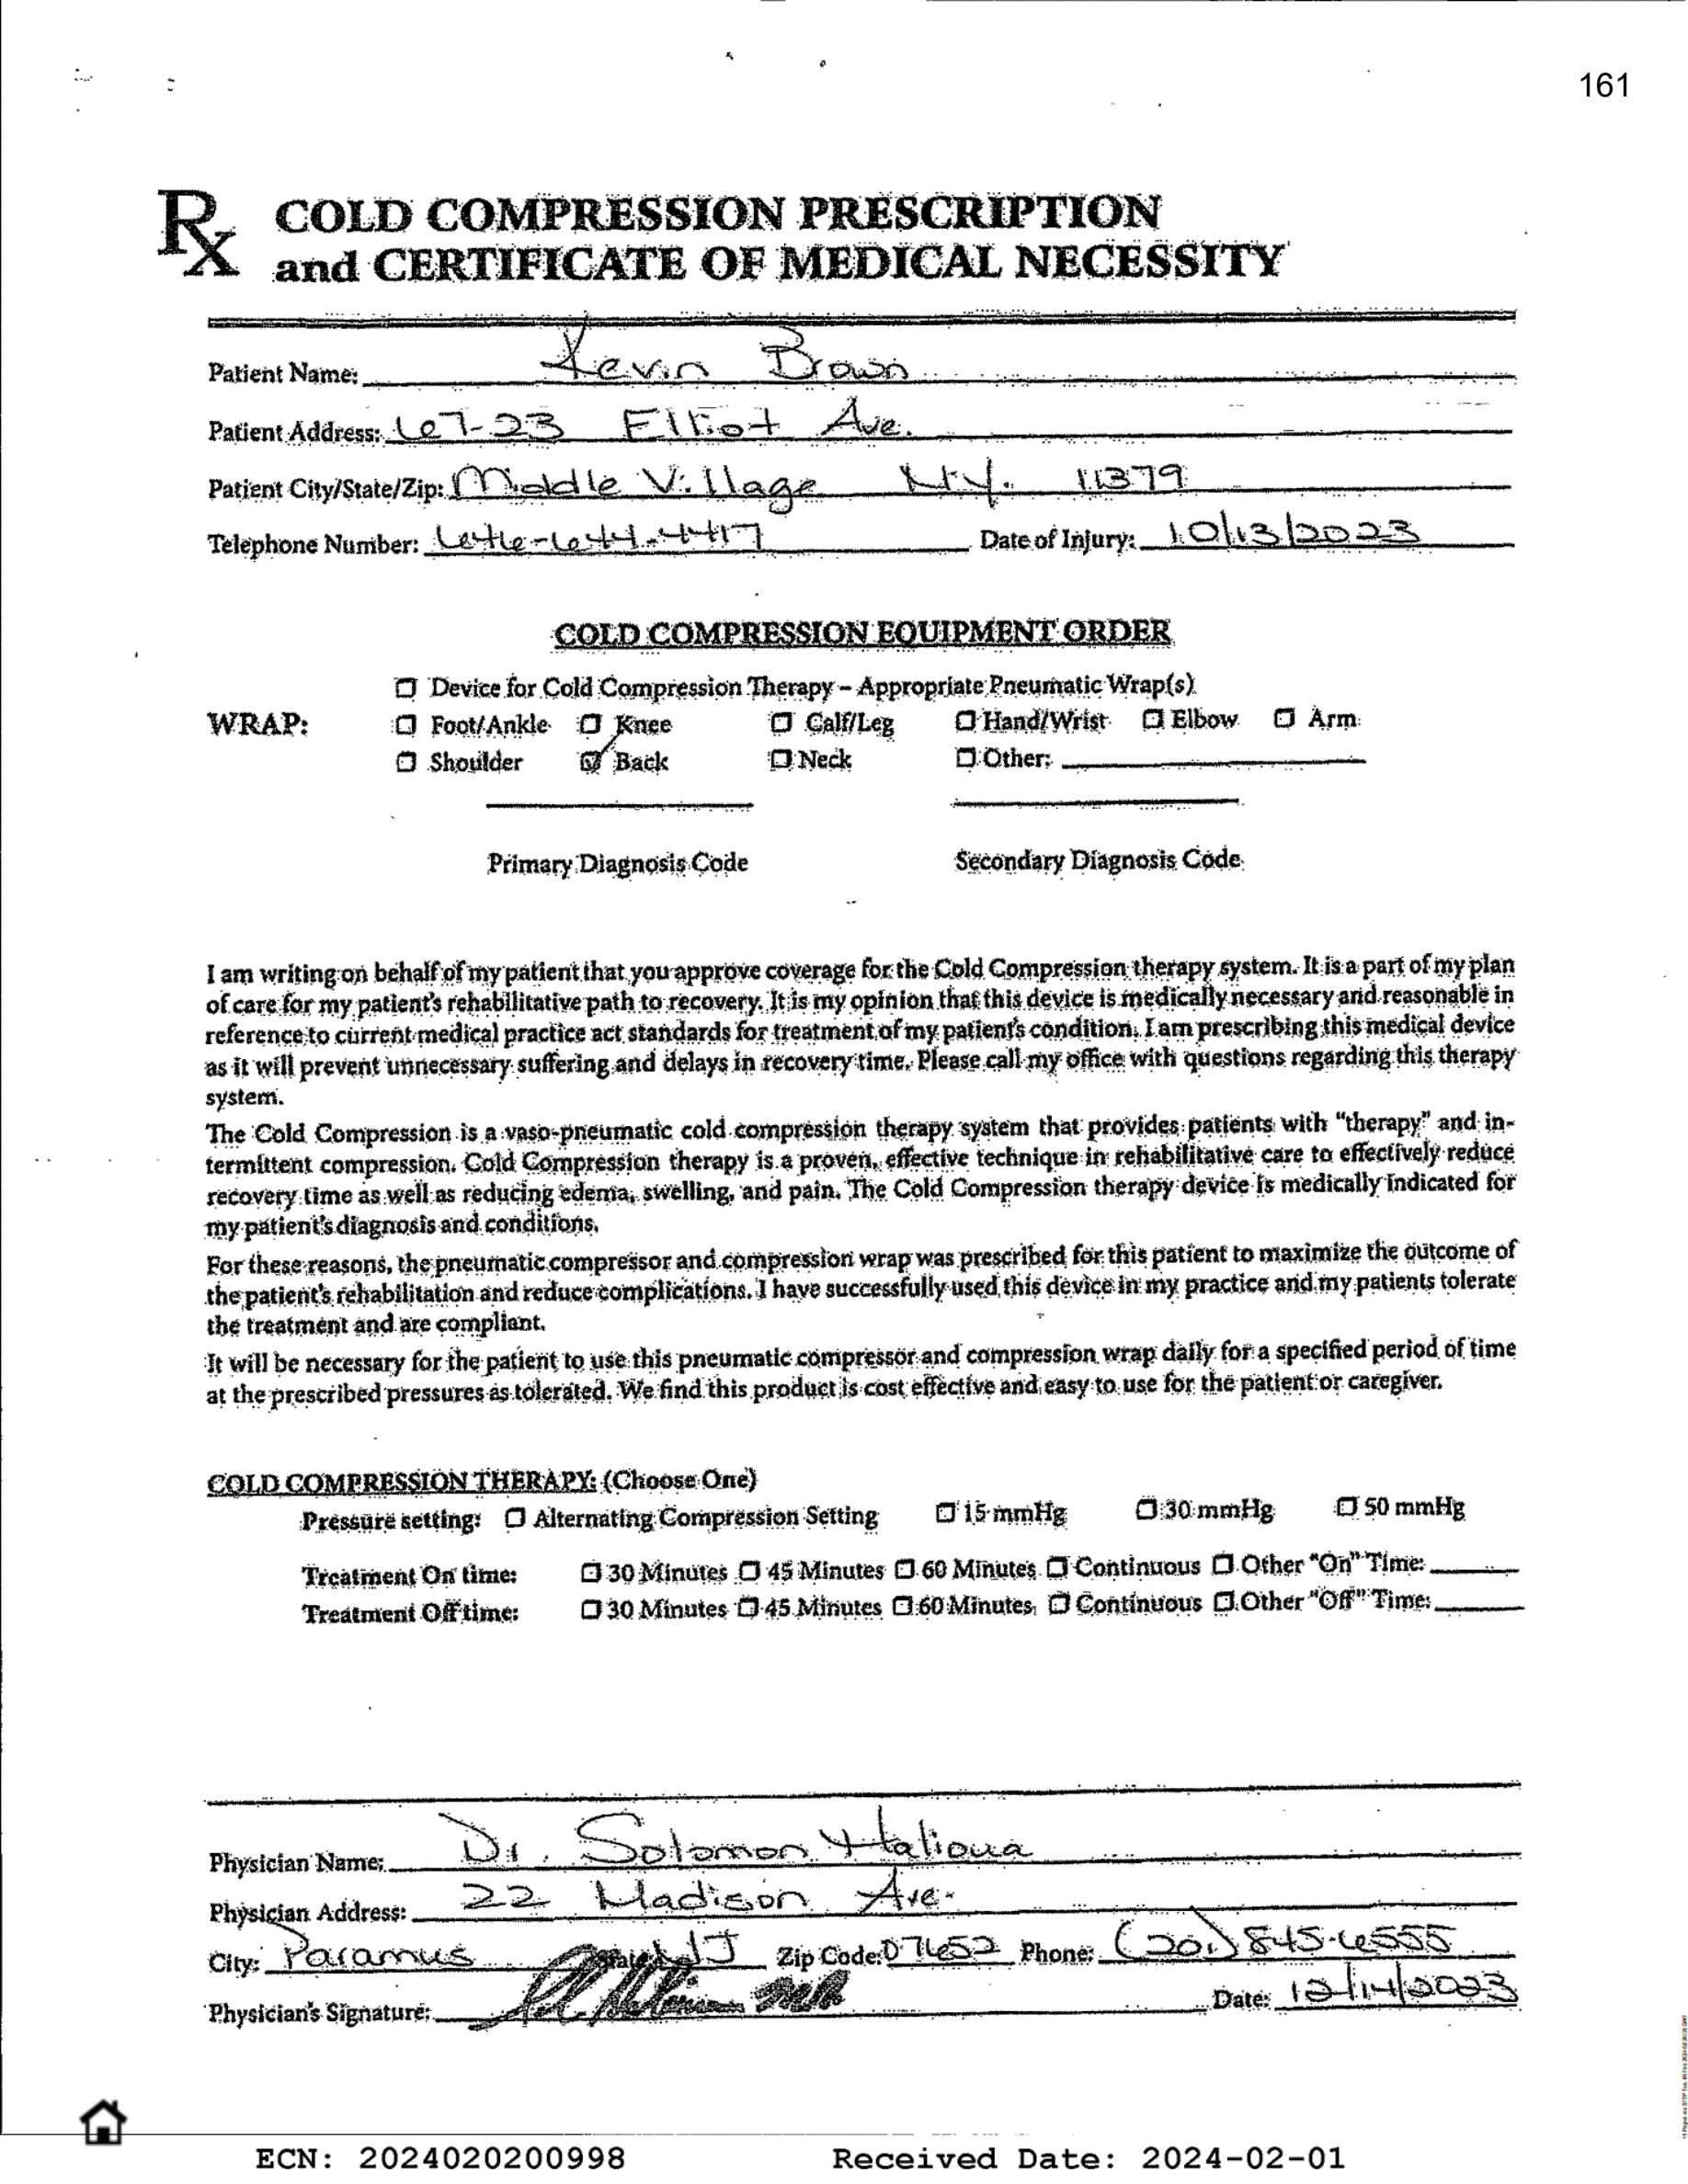 161
Rx COLD COMPRESSION PRESCRIPTION
and CERTIFICATE OF MEDICAL NECESSITY
Patient Name: Kevin Brown
Patient Address: 67-23 Elliot Ave.
Patient City/State/Zip: Middle Village N.Y. 11379
Telephone Number: 646-644-4417 Date of Injury: 10/13/2023
COLD COMPRESSION EQUIPMENT ORDER
☐ Device for Cold Compression Therapy – Appropriate Pneumatic Wrap(s)
WRAP: ☐ Foot/Ankle ☐ Knee ☐ Calf/Leg ☐ Hand/Wrist ☐ Elbow ☐ Arm
☐ Shoulder ☑ Back ☐ Neck ☐ Other:
Primary Diagnosis Code Secondary Diagnosis Code
I am writing on behalf of my patient that you approve coverage for the Cold Compression therapy system. It is a part of my plan
of care for my patient's rehabilitative path to recovery. It is my opinion that this device is medically necessary and reasonable in
reference to current medical practice act standards for treatment of my patient's condition. I am prescribing this medical device
as it will prevent unnecessary suffering and delays in recovery time. Please call my office with questions regarding this therapy
system.
The Cold Compression is a vaso-pneumatic cold compression therapy system that provides patients with "therapy" and in-
termittent compression. Cold Compression therapy is a proven, effective technique in rehabilitative care to effectively reduce
recovery time as well as reducing edema, swelling, and pain. The Cold Compression therapy device is medically indicated for
my patient's diagnosis and conditions.
For these reasons, the pneumatic compressor and compression wrap was prescribed for this patient to maximize the outcome of
the patient's rehabilitation and reduce complications. I have successfully used this device in my practice and my patients tolerate
the treatment and are compliant.
It will be necessary for the patient to use this pneumatic compressor and compression wrap daily for a specified period of time
at the prescribed pressures as tolerated. We find this product is cost effective and easy to use for the patient or caregiver.
COLD COMPRESSION THERAPY: (Choose One)
Pressure setting: ☐ Alternating Compression Setting ☐ 15 mmHg ☐ 30 mmHg ☐ 50 mmHg
Treatment On time: ☐ 30 Minutes ☐ 45 Minutes ☐ 60 Minutes ☐ Continuous ☐ Other "On" Time:
Treatment Off time: ☐ 30 Minutes ☐ 45 Minutes ☐ 60 Minutes ☐ Continuous ☐ Other "Off" Time:
Physician Name: Dr. Solomon Halioua
Physician Address: 22 Madison Ave.
City: Paramus State: NJ Zip Code: 07652 Phone: (201) 845-6555
Physician's Signature: Date: 12/14/2023
ECN: 2024020200998 Received Date: 2024-02-01